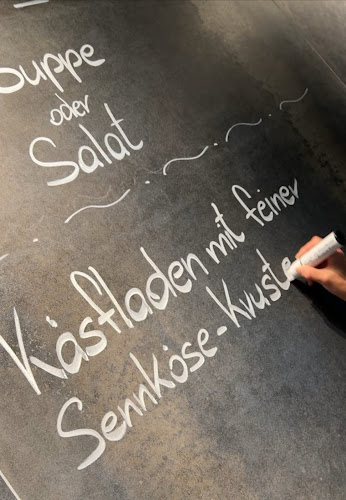 Suppe
oder
Salat
Käsfladen mit feiner
Sennköse-Kruste